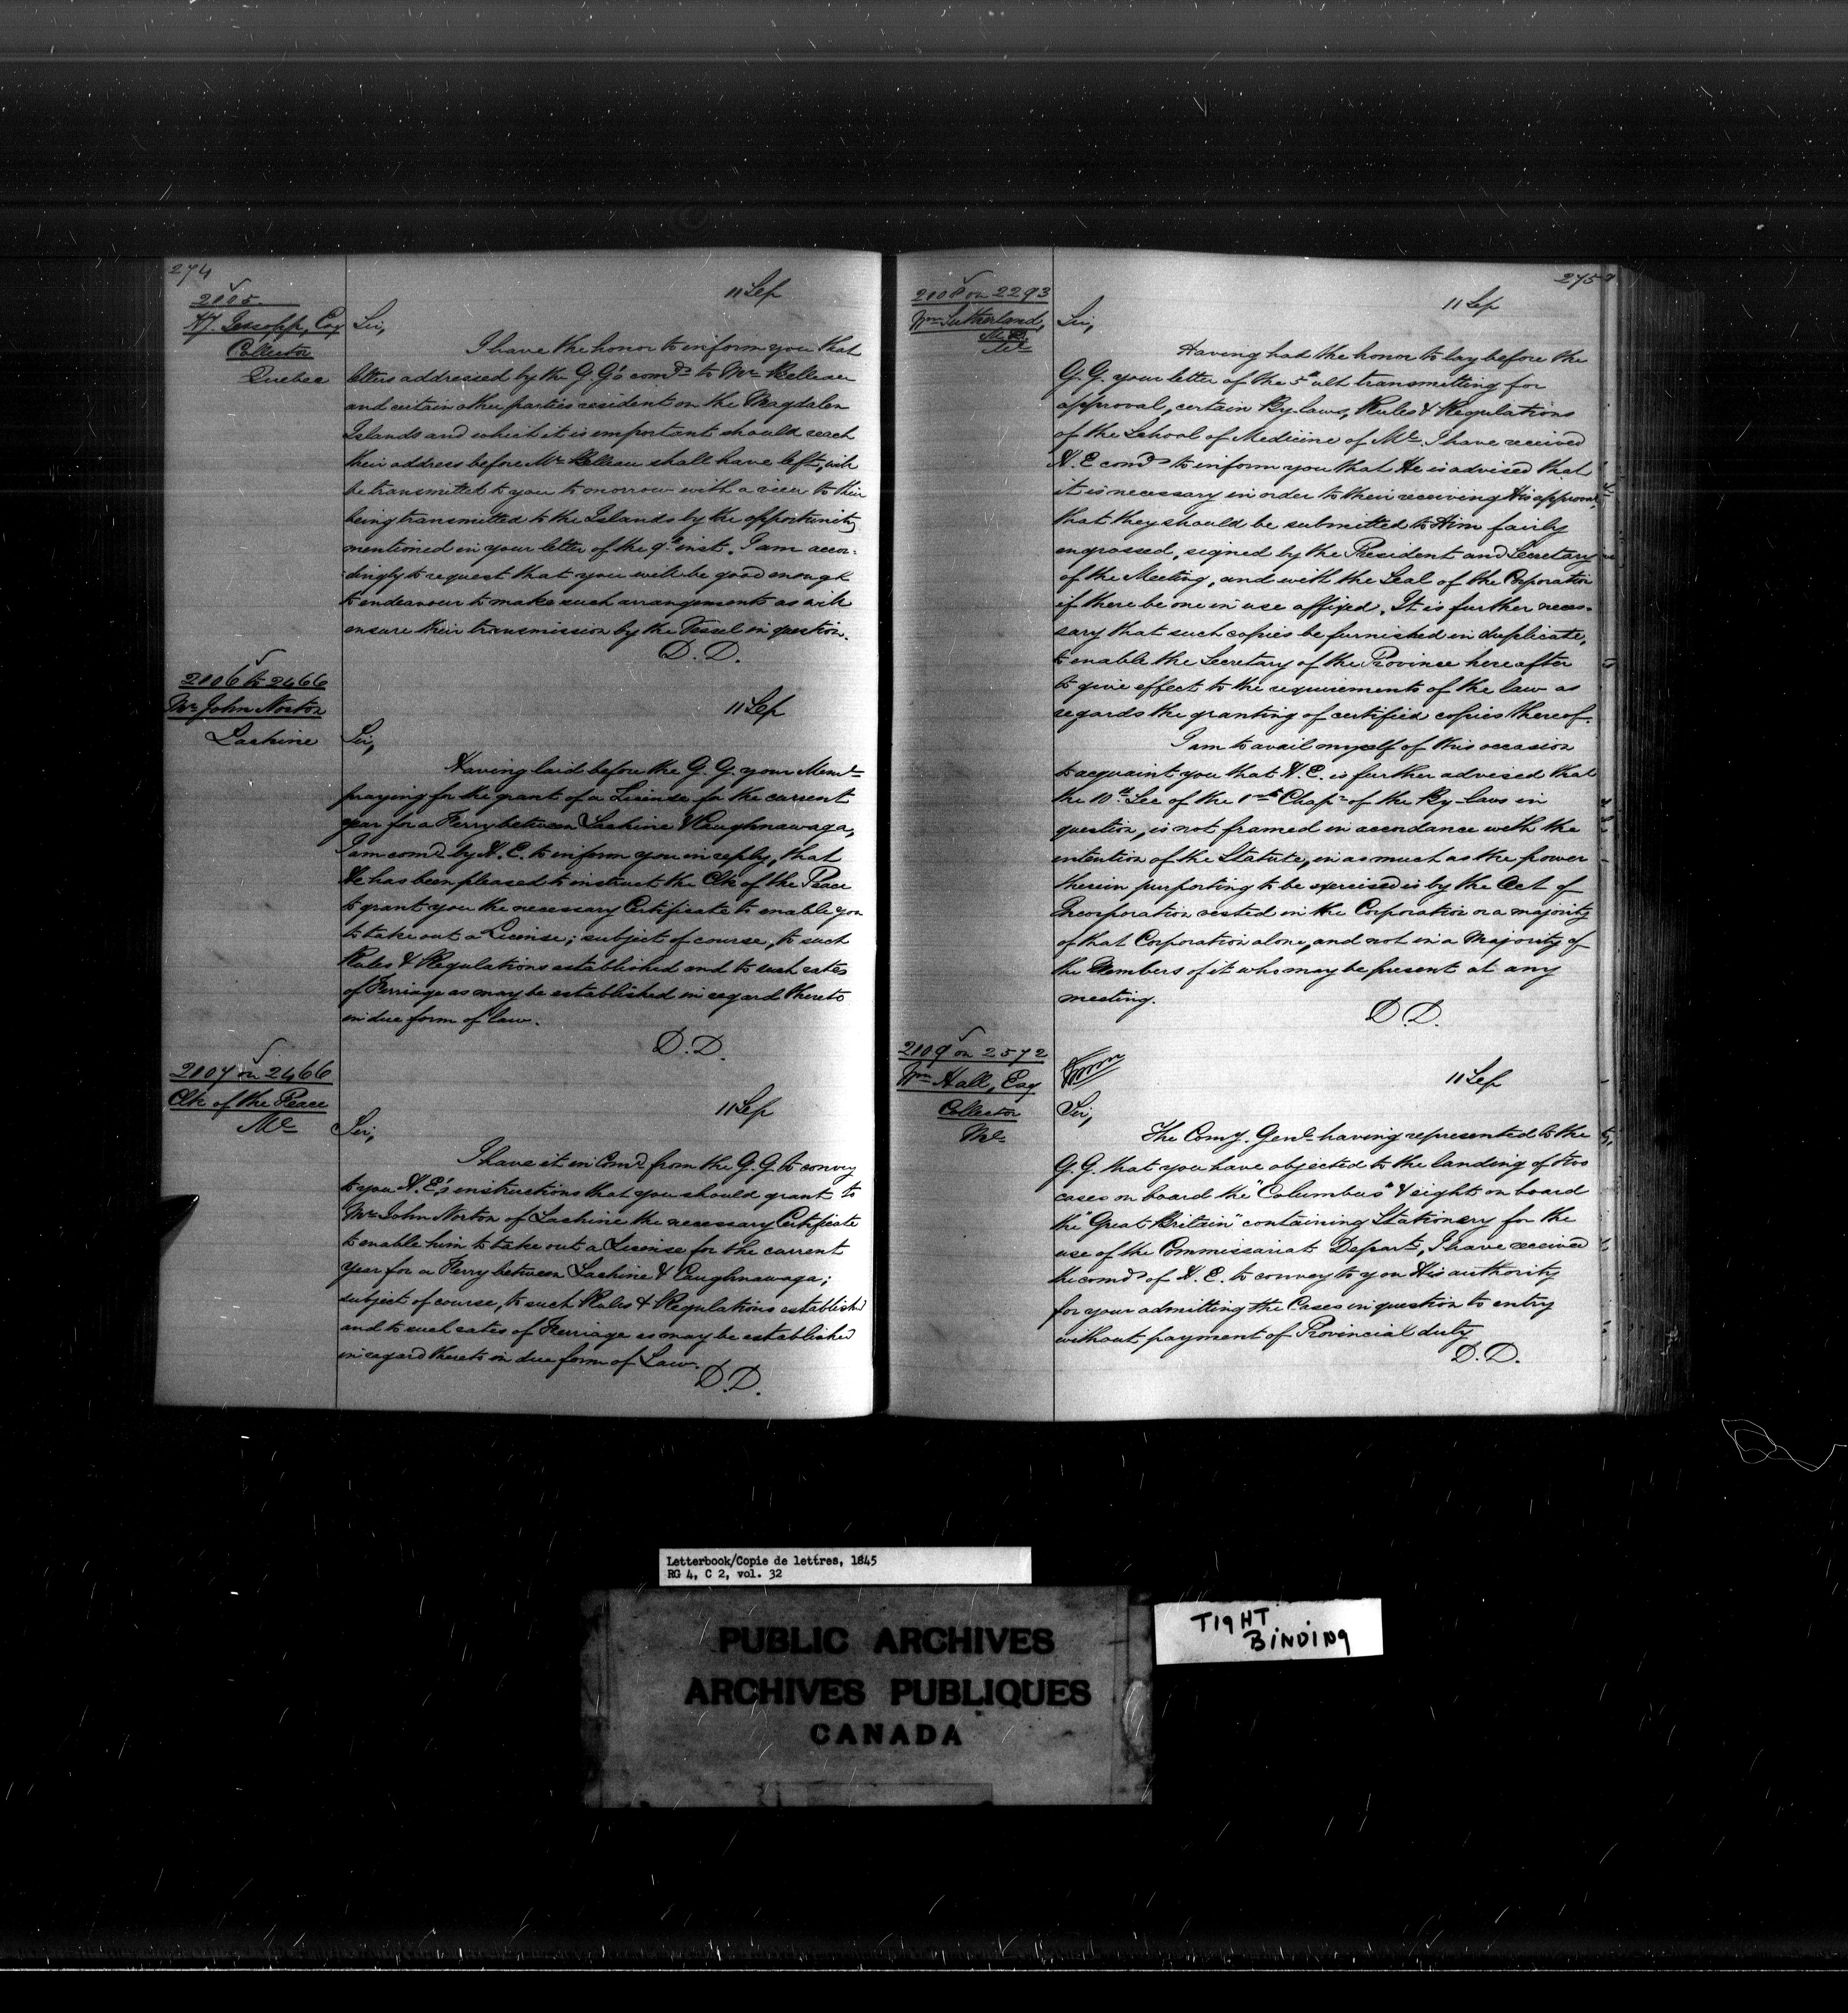 274
2005
H. Jessopp, Esq
Collector
Quebec
11 Sep
Sir,
I have the honor to inform you that
letters addressed by the G.G's comds to Mr Belleau
and certain other parties resident on the Magdalen
Islands and which it is important should reach
their address before Mr Belleau shall have left, will
be transmitted to you tomorrow with a view to their
being transmitted to the Islands by the opportunity
mentioned in your letter of the 9th inst. I am accor-
dingly to request that you will be good enough
to endeavour to make such arrangements as will
ensure their transmission by the Vessel in question.
D.D.
2006 to 2466
Mr John Norton
Lachine
11 Sep
Sir,
Having laid before the G.G. your Meml
praying for the grant of a License for the current
year for a Ferry between Lachine & Caughnawaga,
I am comd by H.E. to inform you in reply, that
He has been pleased to instruct the Clk of the Peace
to grant you the necessary Certificate to enable you
to take out a License; subject of course, to such
Rules & Regulations established and to such rates
of Ferriage as may be established in regard thereto
in due form of law.
D.D.
2007 on 2466
Clk of the Peace
Ml
11 Sep
Sir,
I have it in Comd from the G.G. to convey
to you H.E's instructions that you should grant to
Mr John Norton of Lachine the necessary Certificate
to enable him to take out a License for the current
year for a Ferry between Lachine & Caughnawaga;
subject of course, to such Rules & Regulations established
and to such rates of Ferriage as may be established
in regard thereto in due form of Law.
D.D.
275
2008 on 2293
Wm Sutherland,
11 Sep
Sir,
Having had the honor to lay before the
G.G. your letter of the 5th ult transmitting for
approval, certain By-laws, Rules & Regulations
of the School of Medicine of Ml. I have received
H.E comds to inform you that He is advised that
it is necessary in order to their receiving His approval,
that they should be submitted to Him fairly
engrossed, signed by the President and Secretary
of the Meeting, and with the Seal of the Corporation
if there be one in use affixed. It is further neces-
sary that such copies be furnished in duplicate,
to enable the Secretary of the Province hereafter
to give effect to the requirements of the law as
regards the granting of certified copies thereof.
I am to avail myself of this occasion
to acquaint you that H.E. is further advised that
the 10th Sec of the 1st Chapr of the By-laws in
question, is not framed in accordance with the
intention of the Statute, in as much as the power
therein purporting to be exercised is by the Act of
Incorporation vested in the Corporation or a majority
of that Corporation alone, and not in a Majority of
the Members of it who may be present at any
meeting.
D.D.
2009 on 2572
Wm Hall, Esq
Collector
Ml
11 Sep
Sir,
The Comy. Genl having represented to the
G.G. that you have objected to the landing of two
cases on board the "Columbus" & eight on board
the "Great Britain" containing Stationery for the
use of the Commissariat Depart, I have received
the comds of H.E. to convey to you His authority
for your admitting the Cases in question to entry
without payment of Provincial duty
D.D.
Letterbook/Copie de lettres, 1845
RG 4, C 2, vol. 32
PUBLIC ARCHIVES
ARCHIVES PUBLIQUES
CANADA
TIGHT
BINDING